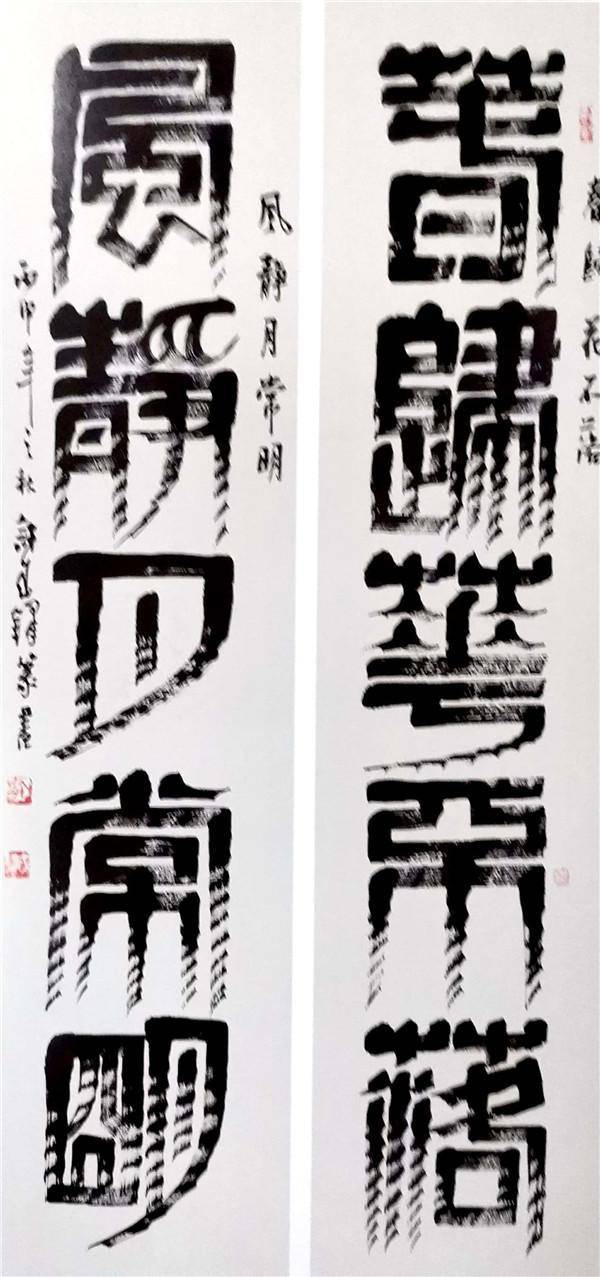 春歸華不落
春歸花不落
風靜月常明
風靜月常明
丙申年